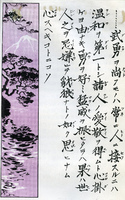 武勇ヲ尚フモノハ常々人ニ接ルニハ
温和ヲ第一トシ諸人ノ愛敬ヲ得ムト心掛
ケヨ由ナキ勇ヲ好ミテ猛威ヲ振ヒタラハ果ハ世
人モ忌嫌ヒテ豺狼ナトノ如ク思ヒナム
心スヘキコトニコソ